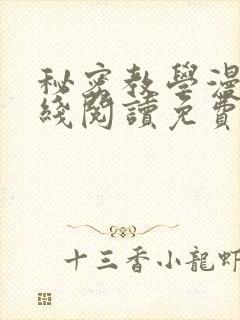 秘密教學漫
綫閱讀免費
十三香小龍蝦